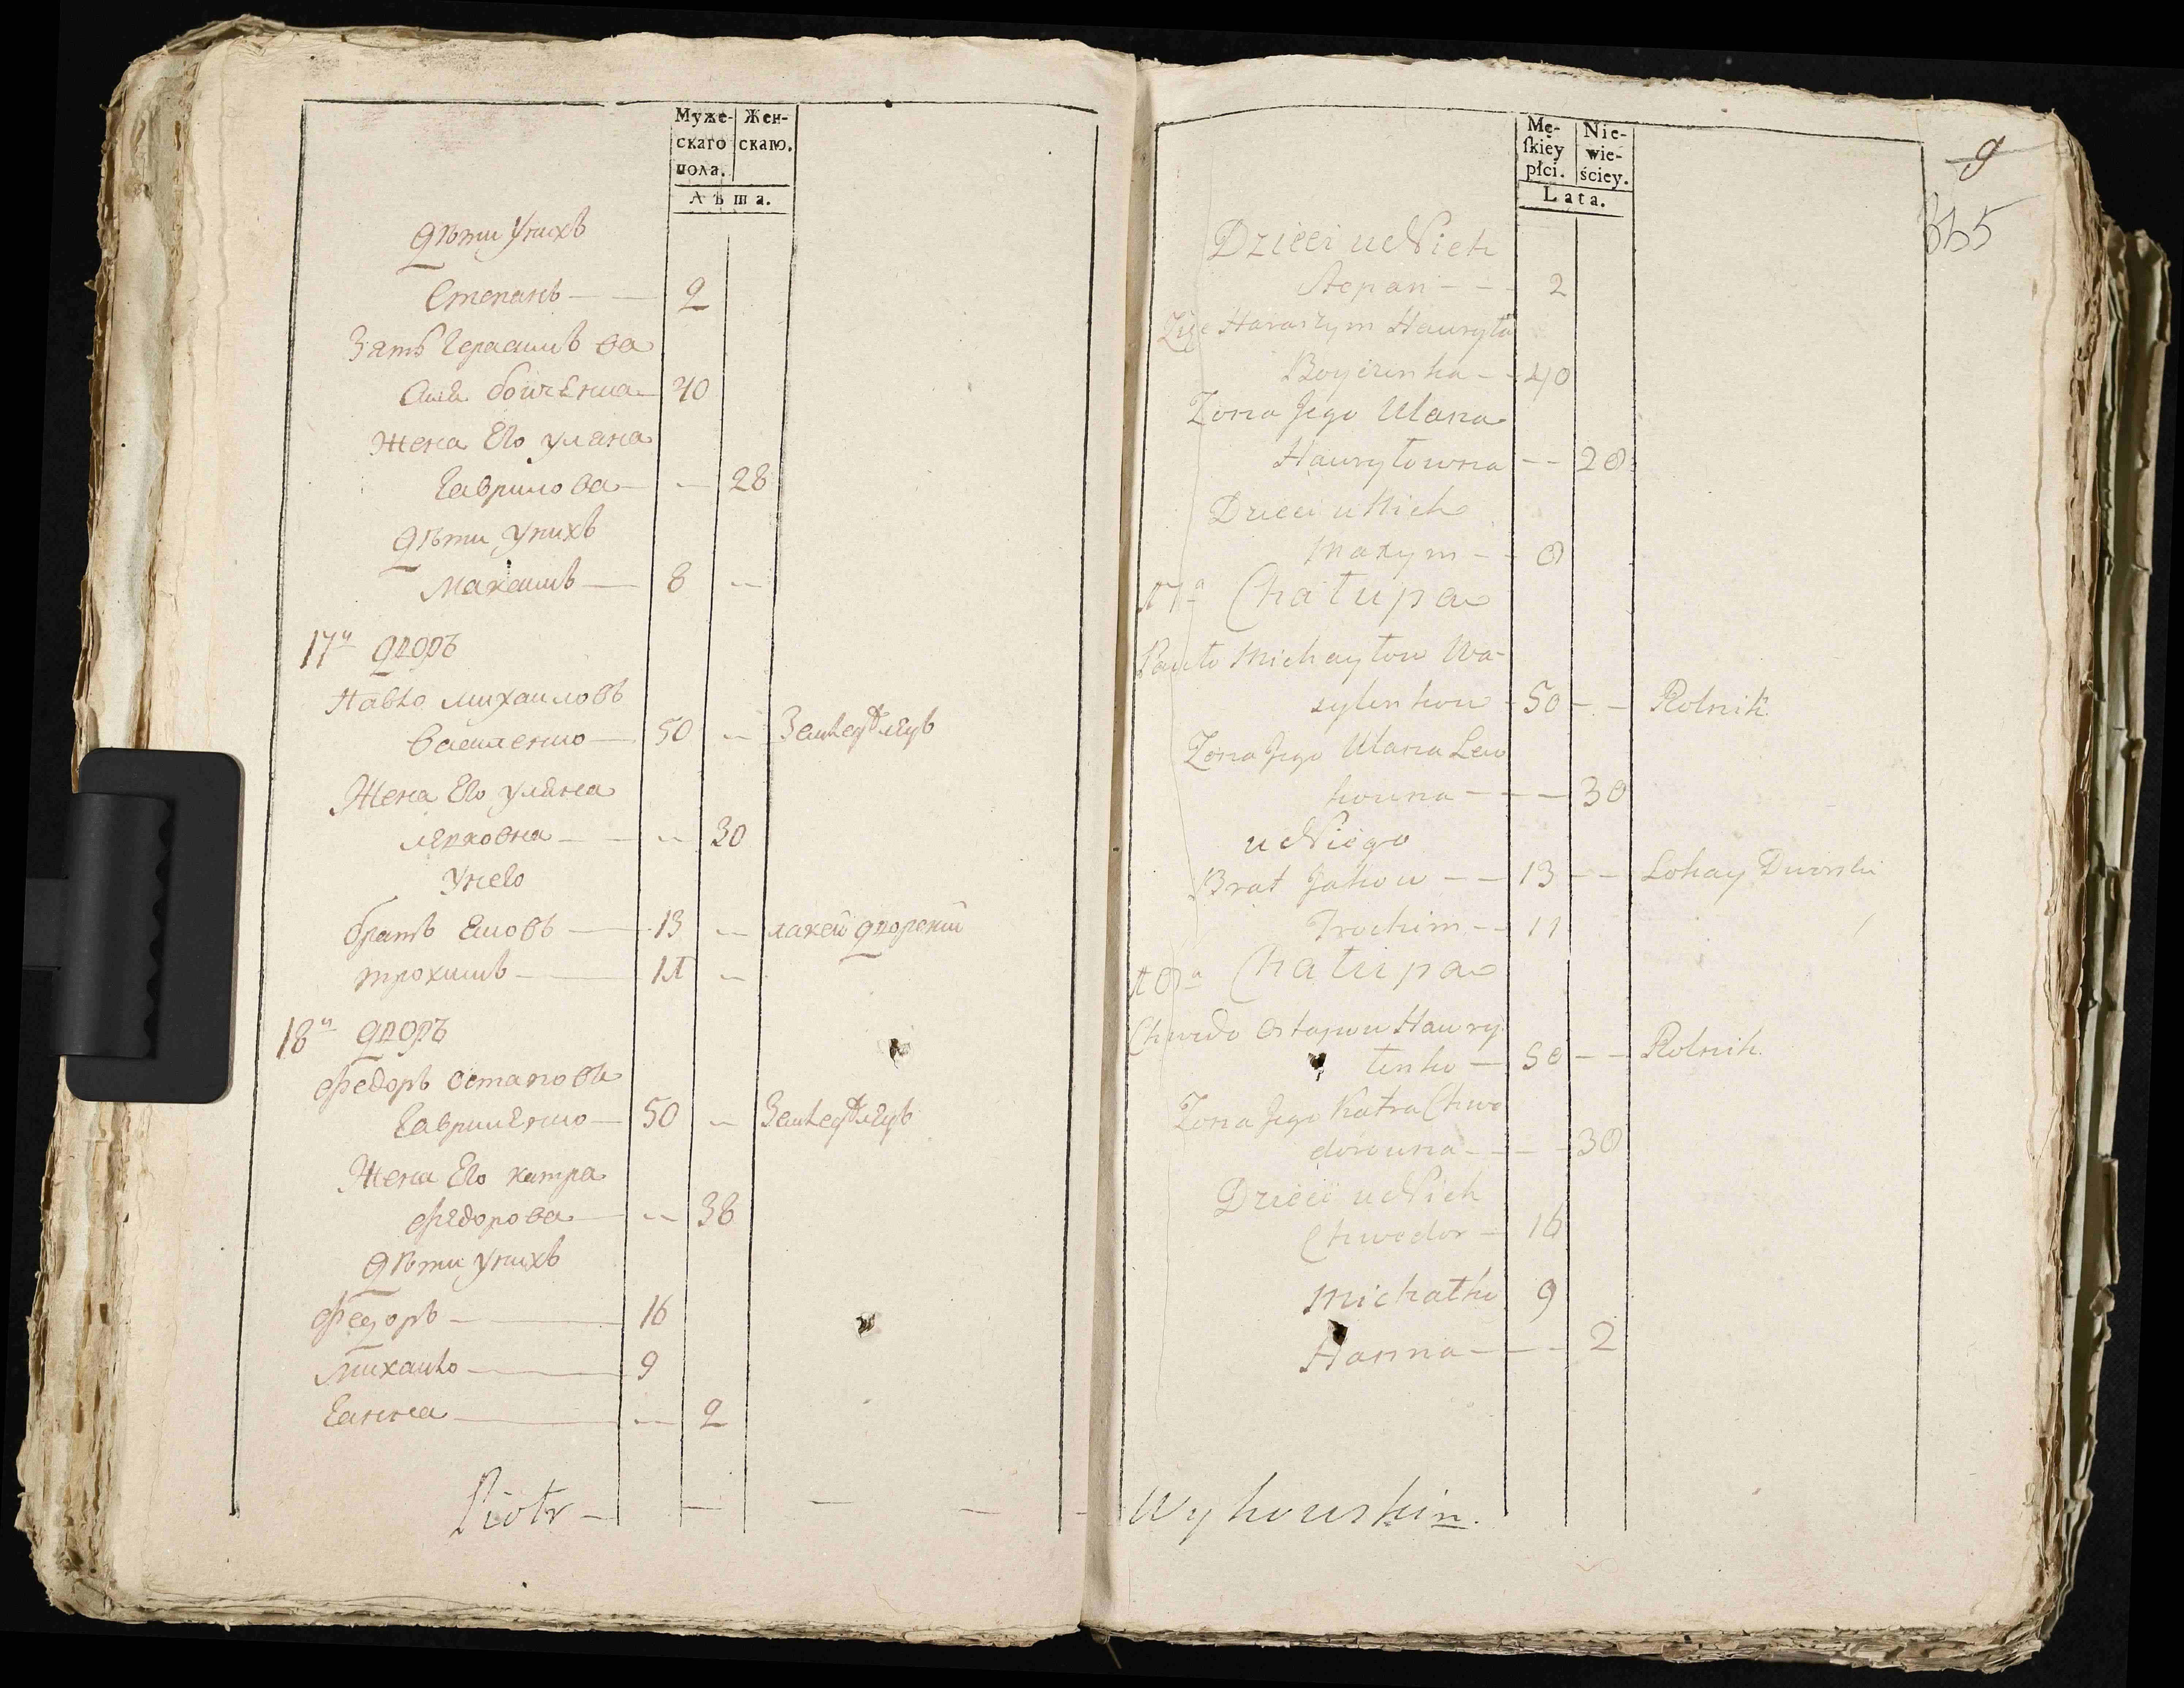 Муже-
скаго
пола.
Жен-
скаго.
Лѣта.
дѣти Унихъ
Степанъ — — 2
Зять Герасимъ ва
Жена Его уляна
Гаврилова — — 28
дѣти Унихъ
Максимъ — 8 —
17й дворъ
Павло михаиловъ
Василенко — 50 — Землед
Жена Его уляна
— — 30
Унего
братъ Яковъ — 13 — лакей дворский
трохимъ — 11 —
18й дворъ
Федоръ Остаповъ
Гавриленко — 50 — Землед
Жена Его катра
Федорова — — 38
дѣти Унихъ
Федоръ — 16
михайло — 9
Ганна — — 2
Piotr — — — —
Mę-
ſkiey
płci.
Nie-
wie-
ściey.
Lata.
9
Dzieci u Nich
Stepan — — 2
Haraszym Hawryło
— 40
Zona Jego Ulana
Hawryłowna — — 28
Dzieci u Nich
Maxym — 8
17a Chałupa
Pawło Michayłow Wa-
sylenkow — 50 — — Rolnik
Zona Jego Ulana Lew
kowna — — — 30
u Niego
Brat Jakow — — 13 — — Lokay Dworski
Trochim — 11
18a Chałupa
Chwedo Ostapow Hawry-
lenko — 50 — — Rolnik.
Zona Jego Katra Chwe
dorowna — — — 38
Dzieci u Nich
Chwedor — 16
Michałko 9
Hanna — — — 2
Wyhowskin.